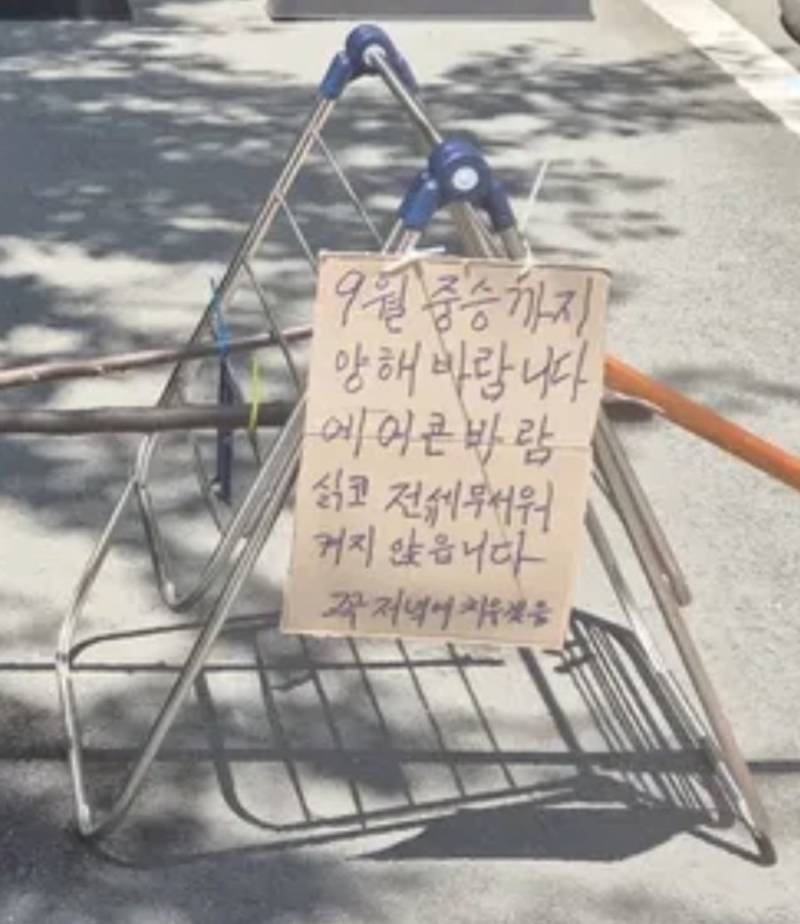 9월 중승까지
양해 바람니다
에어콘 바람
싫코 전세무서워
켜지 않읍니다
꼭 저녁에 치우겠음